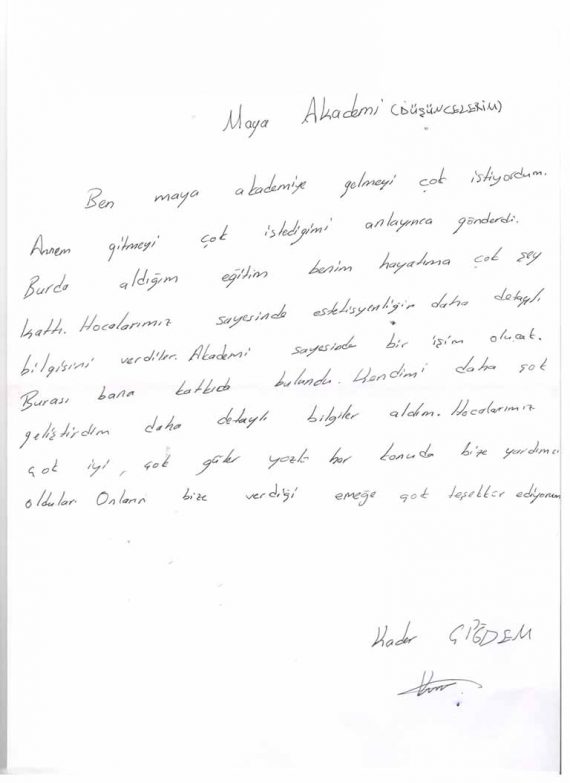 Maya Akademi (DÜŞÜNCELERİM)
Ben maya akademiye gelmeyi çok istiyordum.
Annem gitmeyi çok istediğimi anlayınca gönderdi.
Burda aldığım eğitim benim hayatıma çok şey
kattı. Hocalarımız sayesinde estetisyenliğin daha detaylı
bilgisini verdiler. Akademi sayesinde bir işim olucak.
Burası bana katkıda bulundu. Kendimi daha çok
geliştirdim daha detaylı bilgiler aldım. Hocalarımız
çok iyi, çok güler yüzlü her konuda bize yardımcı
oldular. Onların bize verdiği emeğe çok teşekkür ediyorum
Kader ÇİĞDEM